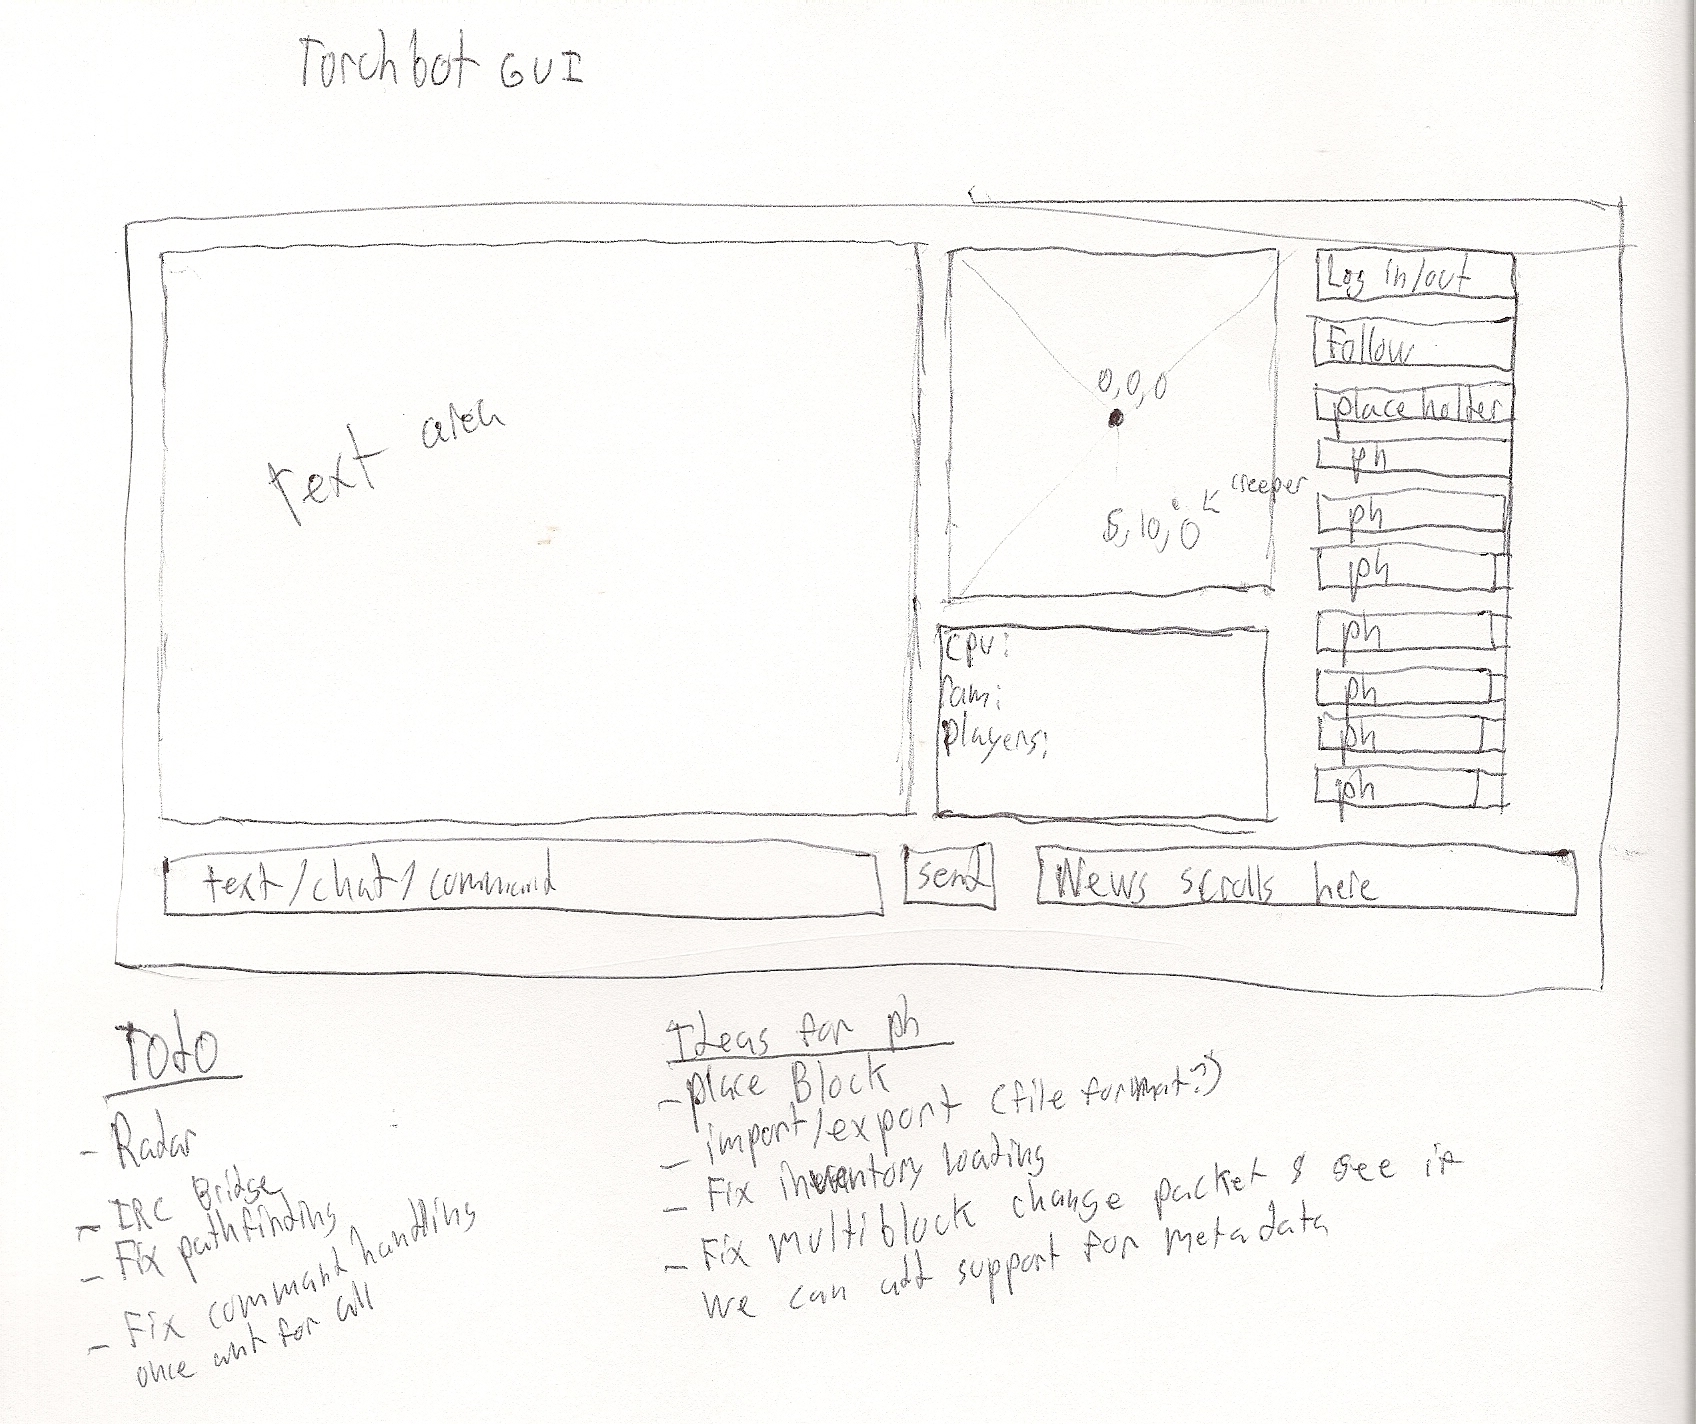 Torchbot GUI
text area
0,0,0
creeper
5,10,0
cpu:
ram:
players:
Log in/out
Follow
place holder
ph
ph
ph
ph
ph
ph
ph
text/chat/command
send
News scrolls here
Todo
- Radar
- IRC Bridge
- Fix pathfinding
- Fix command handling
once and for all
Ideas for ph
- place Block
- import/export (file format?)
- Fix inventory loading
- Fix multiblock change packet & see if
we can add support for metadata